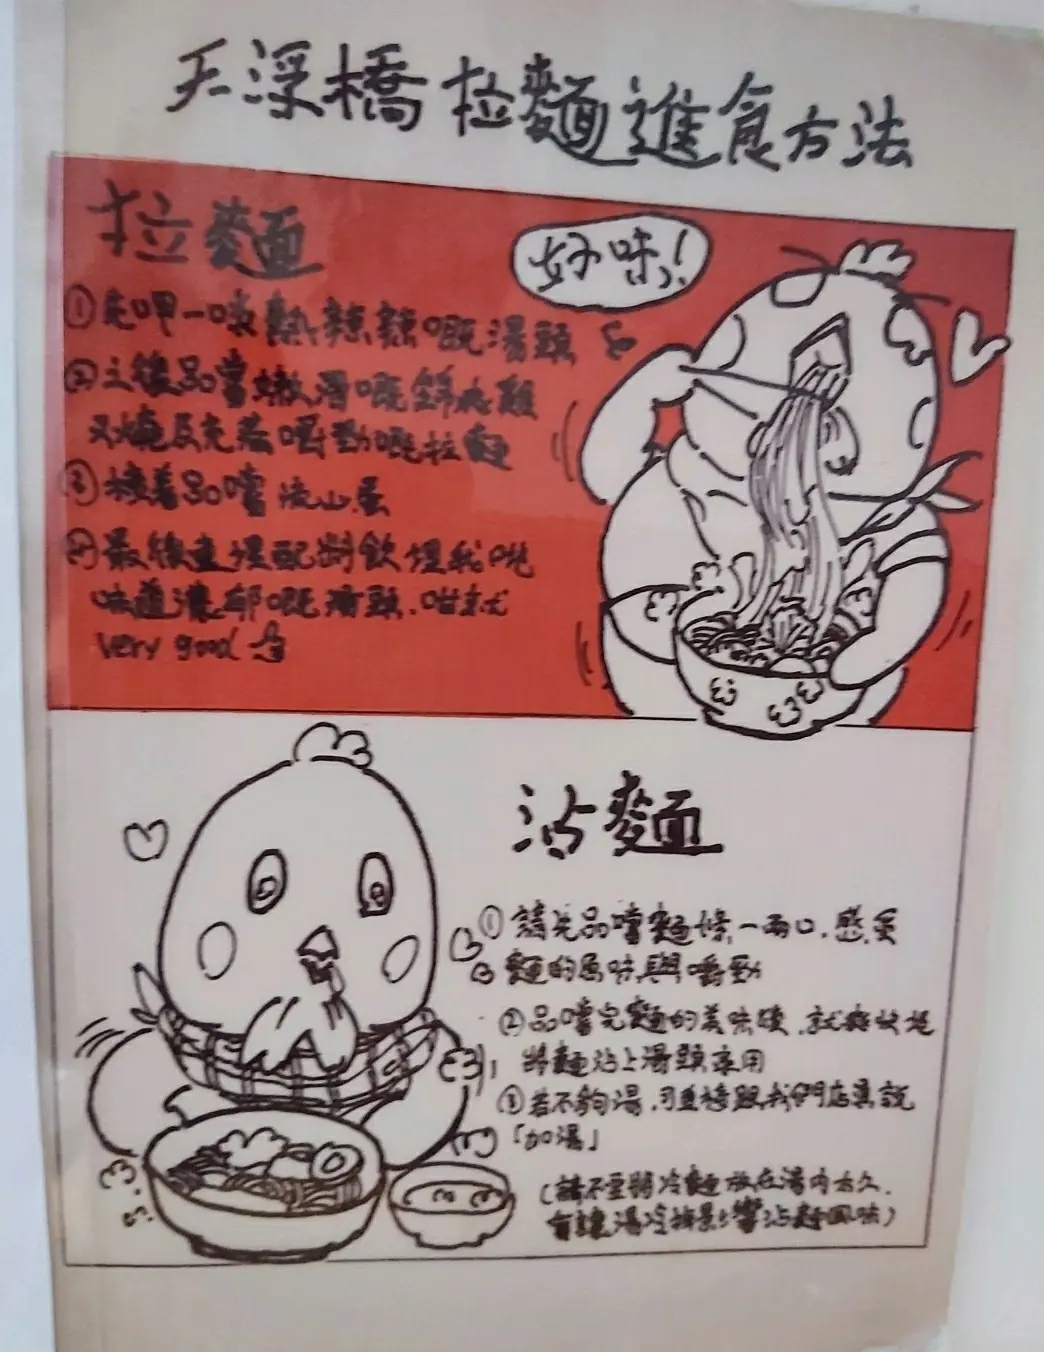 天浮橋 拉麵進食方法
拉麵
好味!
①先呷一啖熱辣辣嘅湯頭
②之後品嘗嫩滑嘅鮮炖雞
叉燒及充滿嚼勁嘅拉麵
③接着品嚐流心蛋
④最後連埋配料飲埋我哋
味道濃郁嘅湯頭,咁就
very good
沾麵
①請先品嚐麵條一兩口,感受
麵的原味與嚼勁
②品嚐完麵的美味後,就爽快地
將麵沾上湯頭享用
③若不夠湯,可直接跟我們店員說
「加湯」
(請不要將冷麵放在湯內太久,
會讓湯冷掉影響沾麵風味)